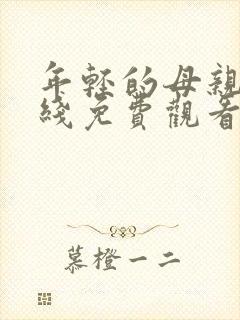 年輕的母親
綫免費觀看
慕橙一二